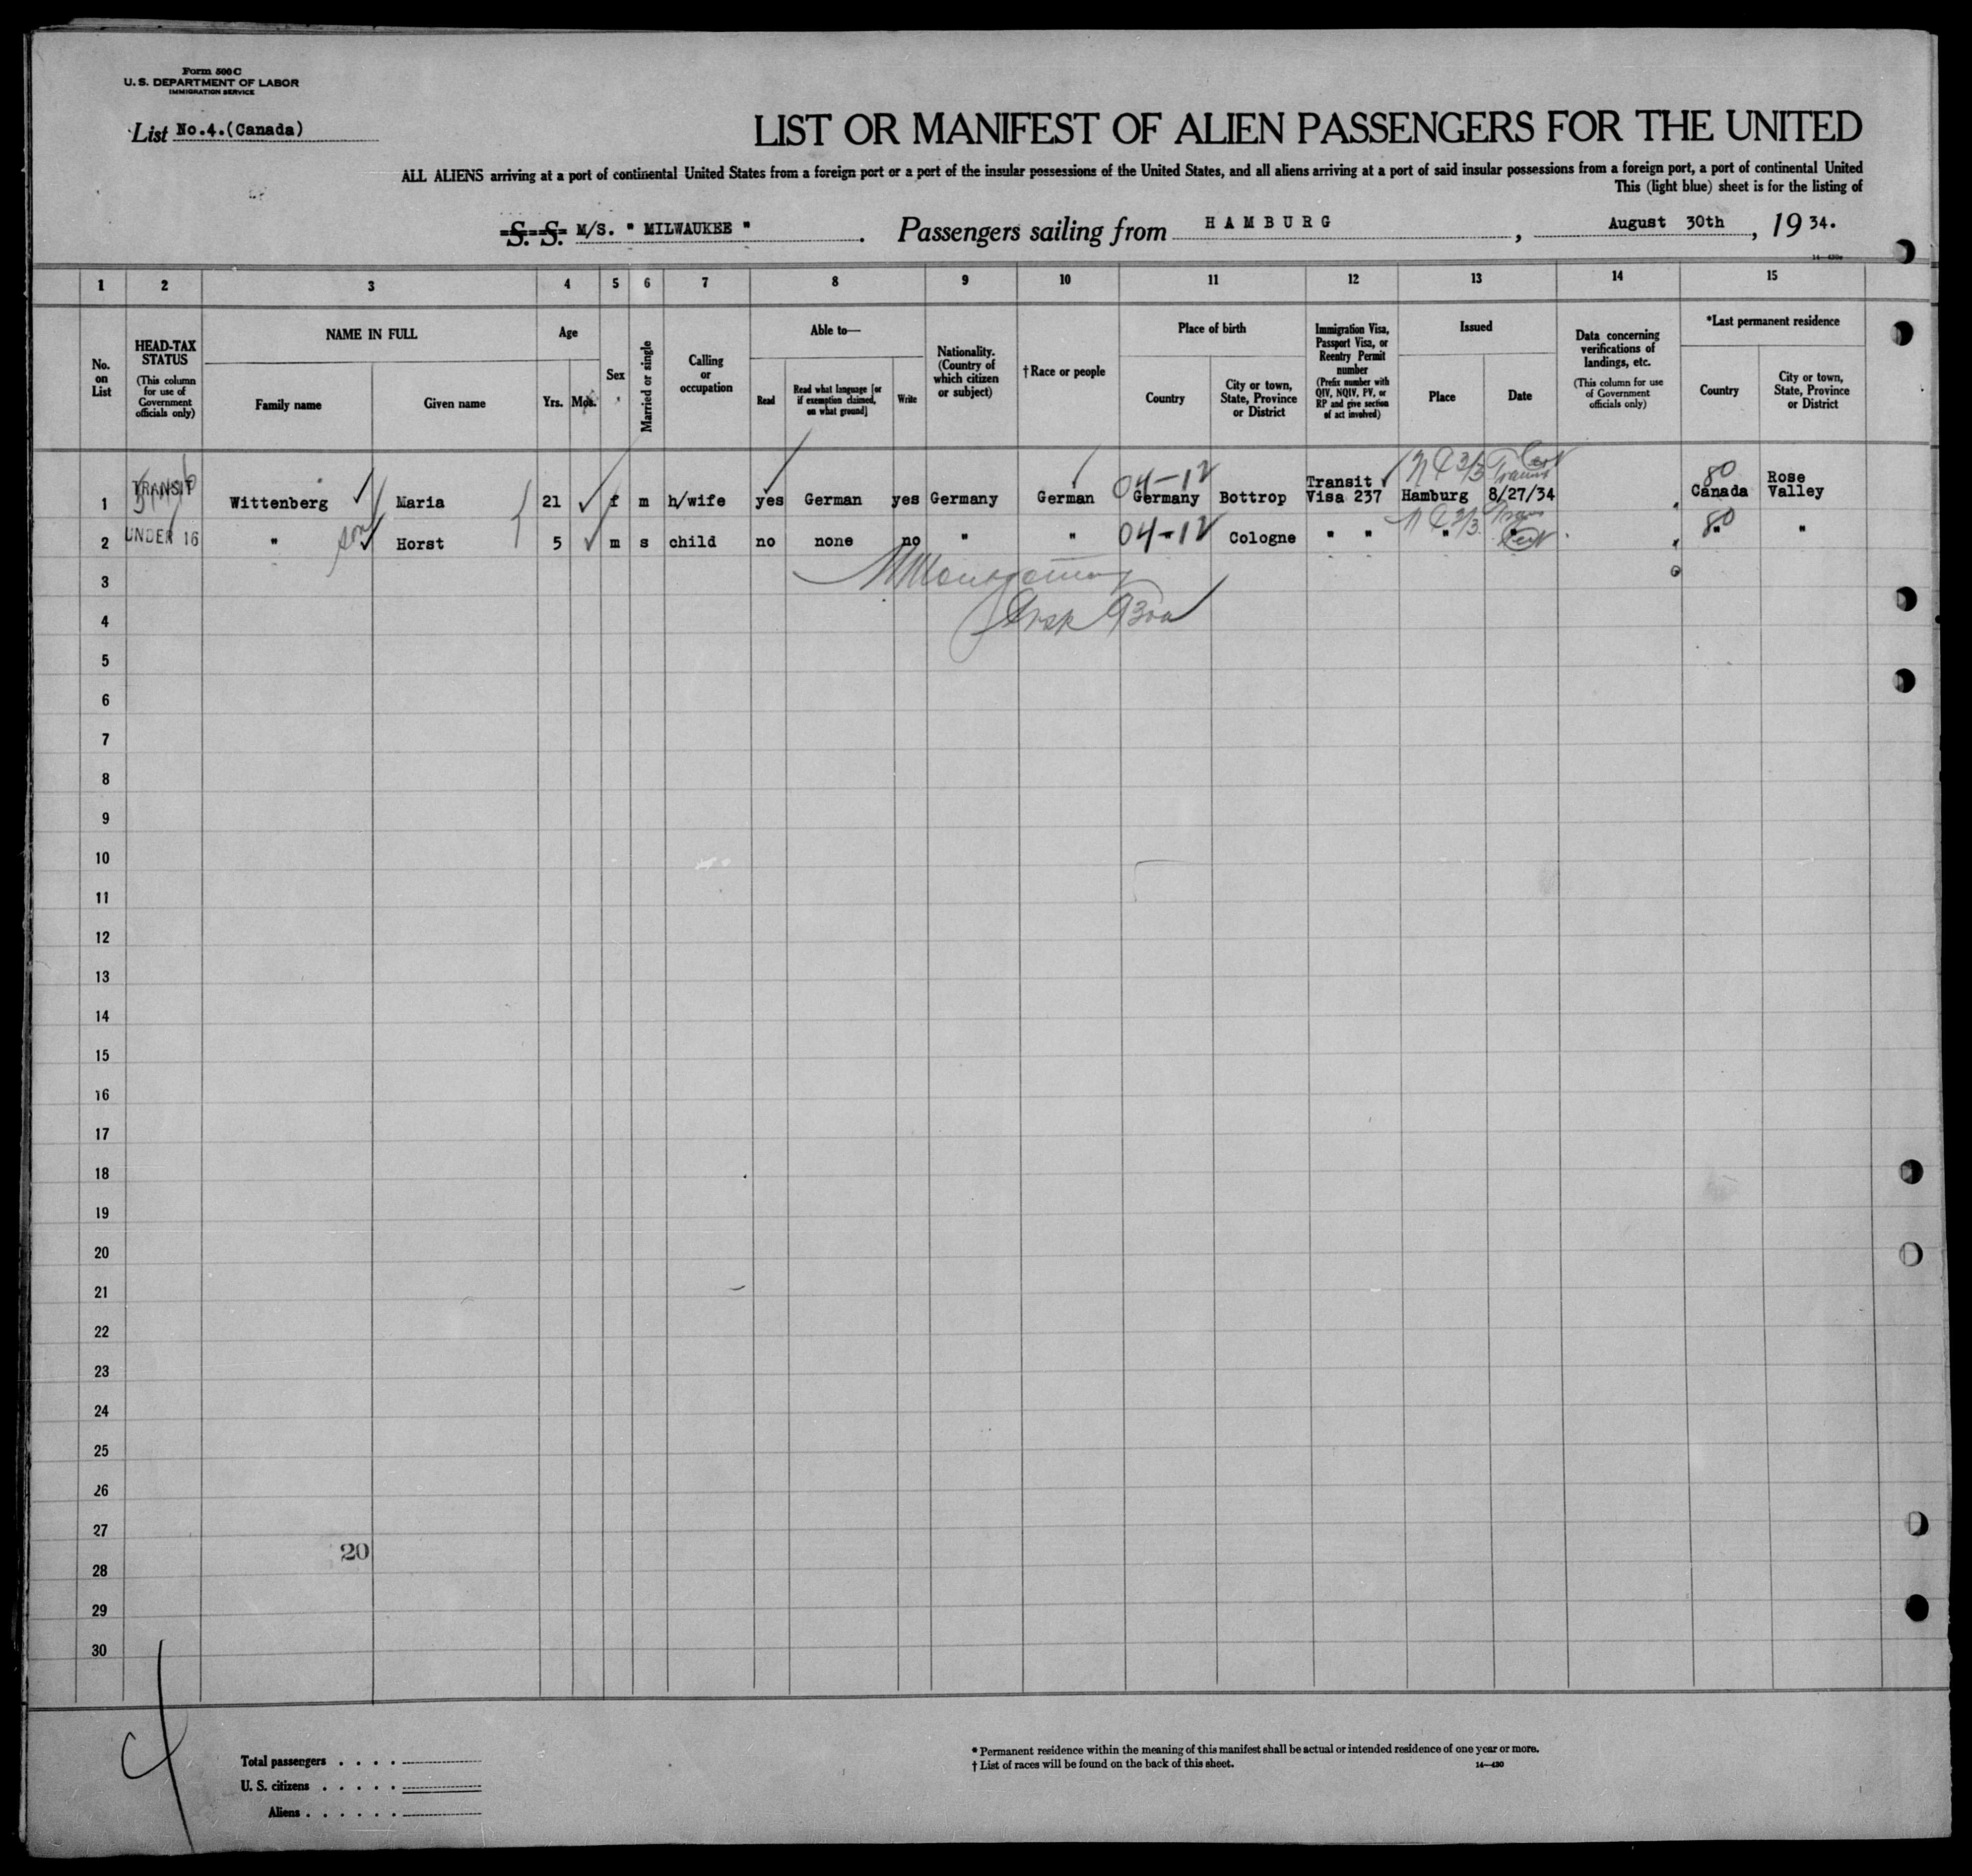 Form 500 C
U. S. DEPARTMENT OF LABOR
IMMIGRATION SERVICE
List No.4.(Canada)
LIST OR MANIFEST OF ALIEN PASSENGERS FOR THE UNITED
ALL ALIENS arriving at a port of continental United States from a foreign port or a port of the insular possessions of the United States, and all aliens arriving at a port of said insular possessions from a foreign port, a port of continental United
This (light blue) sheet is for the listing of
S. S. M/S. " MILWAUKEE " . Passengers sailing from HAMBURG , August 30th , 1934.
1 2 3 4 5 6 7 8 9 10 11 12 13 14 15
No. on List
HEAD-TAX STATUS
(This column for use of Government officials only)
NAME IN FULL
Family name
Given name
Age
Yrs. Mos.
Sex
Married or single
Calling or occupation
Able to—
Read
Read what language [or if exemption claimed, on what ground]
Write
Nationality. (Country of which citizen or subject)
†Race or people
Place of birth
Country
City or town, State, Province or District
Immigration Visa, Passport Visa, or Reentry Permit number
(Prefix number with QIV, NQIV, PV, or RP and give section of act involved)
Issued
Place
Date
Data concerning verifications of landings, etc.
(This column for use of Government officials only)
*Last permanent residence
Country
City or town, State, Province or District
1 TRANSIT Wittenberg Maria 21 f m h/wife yes German yes Germany German 04-12 Germany Bottrop Transit Visa 237 Hamburg 8/27/34 80 Canada Rose Valley
2 UNDER 16 " son Horst 5 m s child no none no " " 04-12 Cologne " " " " 80 " "
3
4
5
6
7
8
9
10
11
12
13
14
15
16
17
18
19
20
21
22
23
24
25
26
27
20
28
29
30
4
Total passengers . . . .
U. S. citizens . . . . .
Aliens . . . . . .
* Permanent residence within the meaning of this manifest shall be actual or intended residence of one year or more.
† List of races will be found on the back of this sheet.
14—430